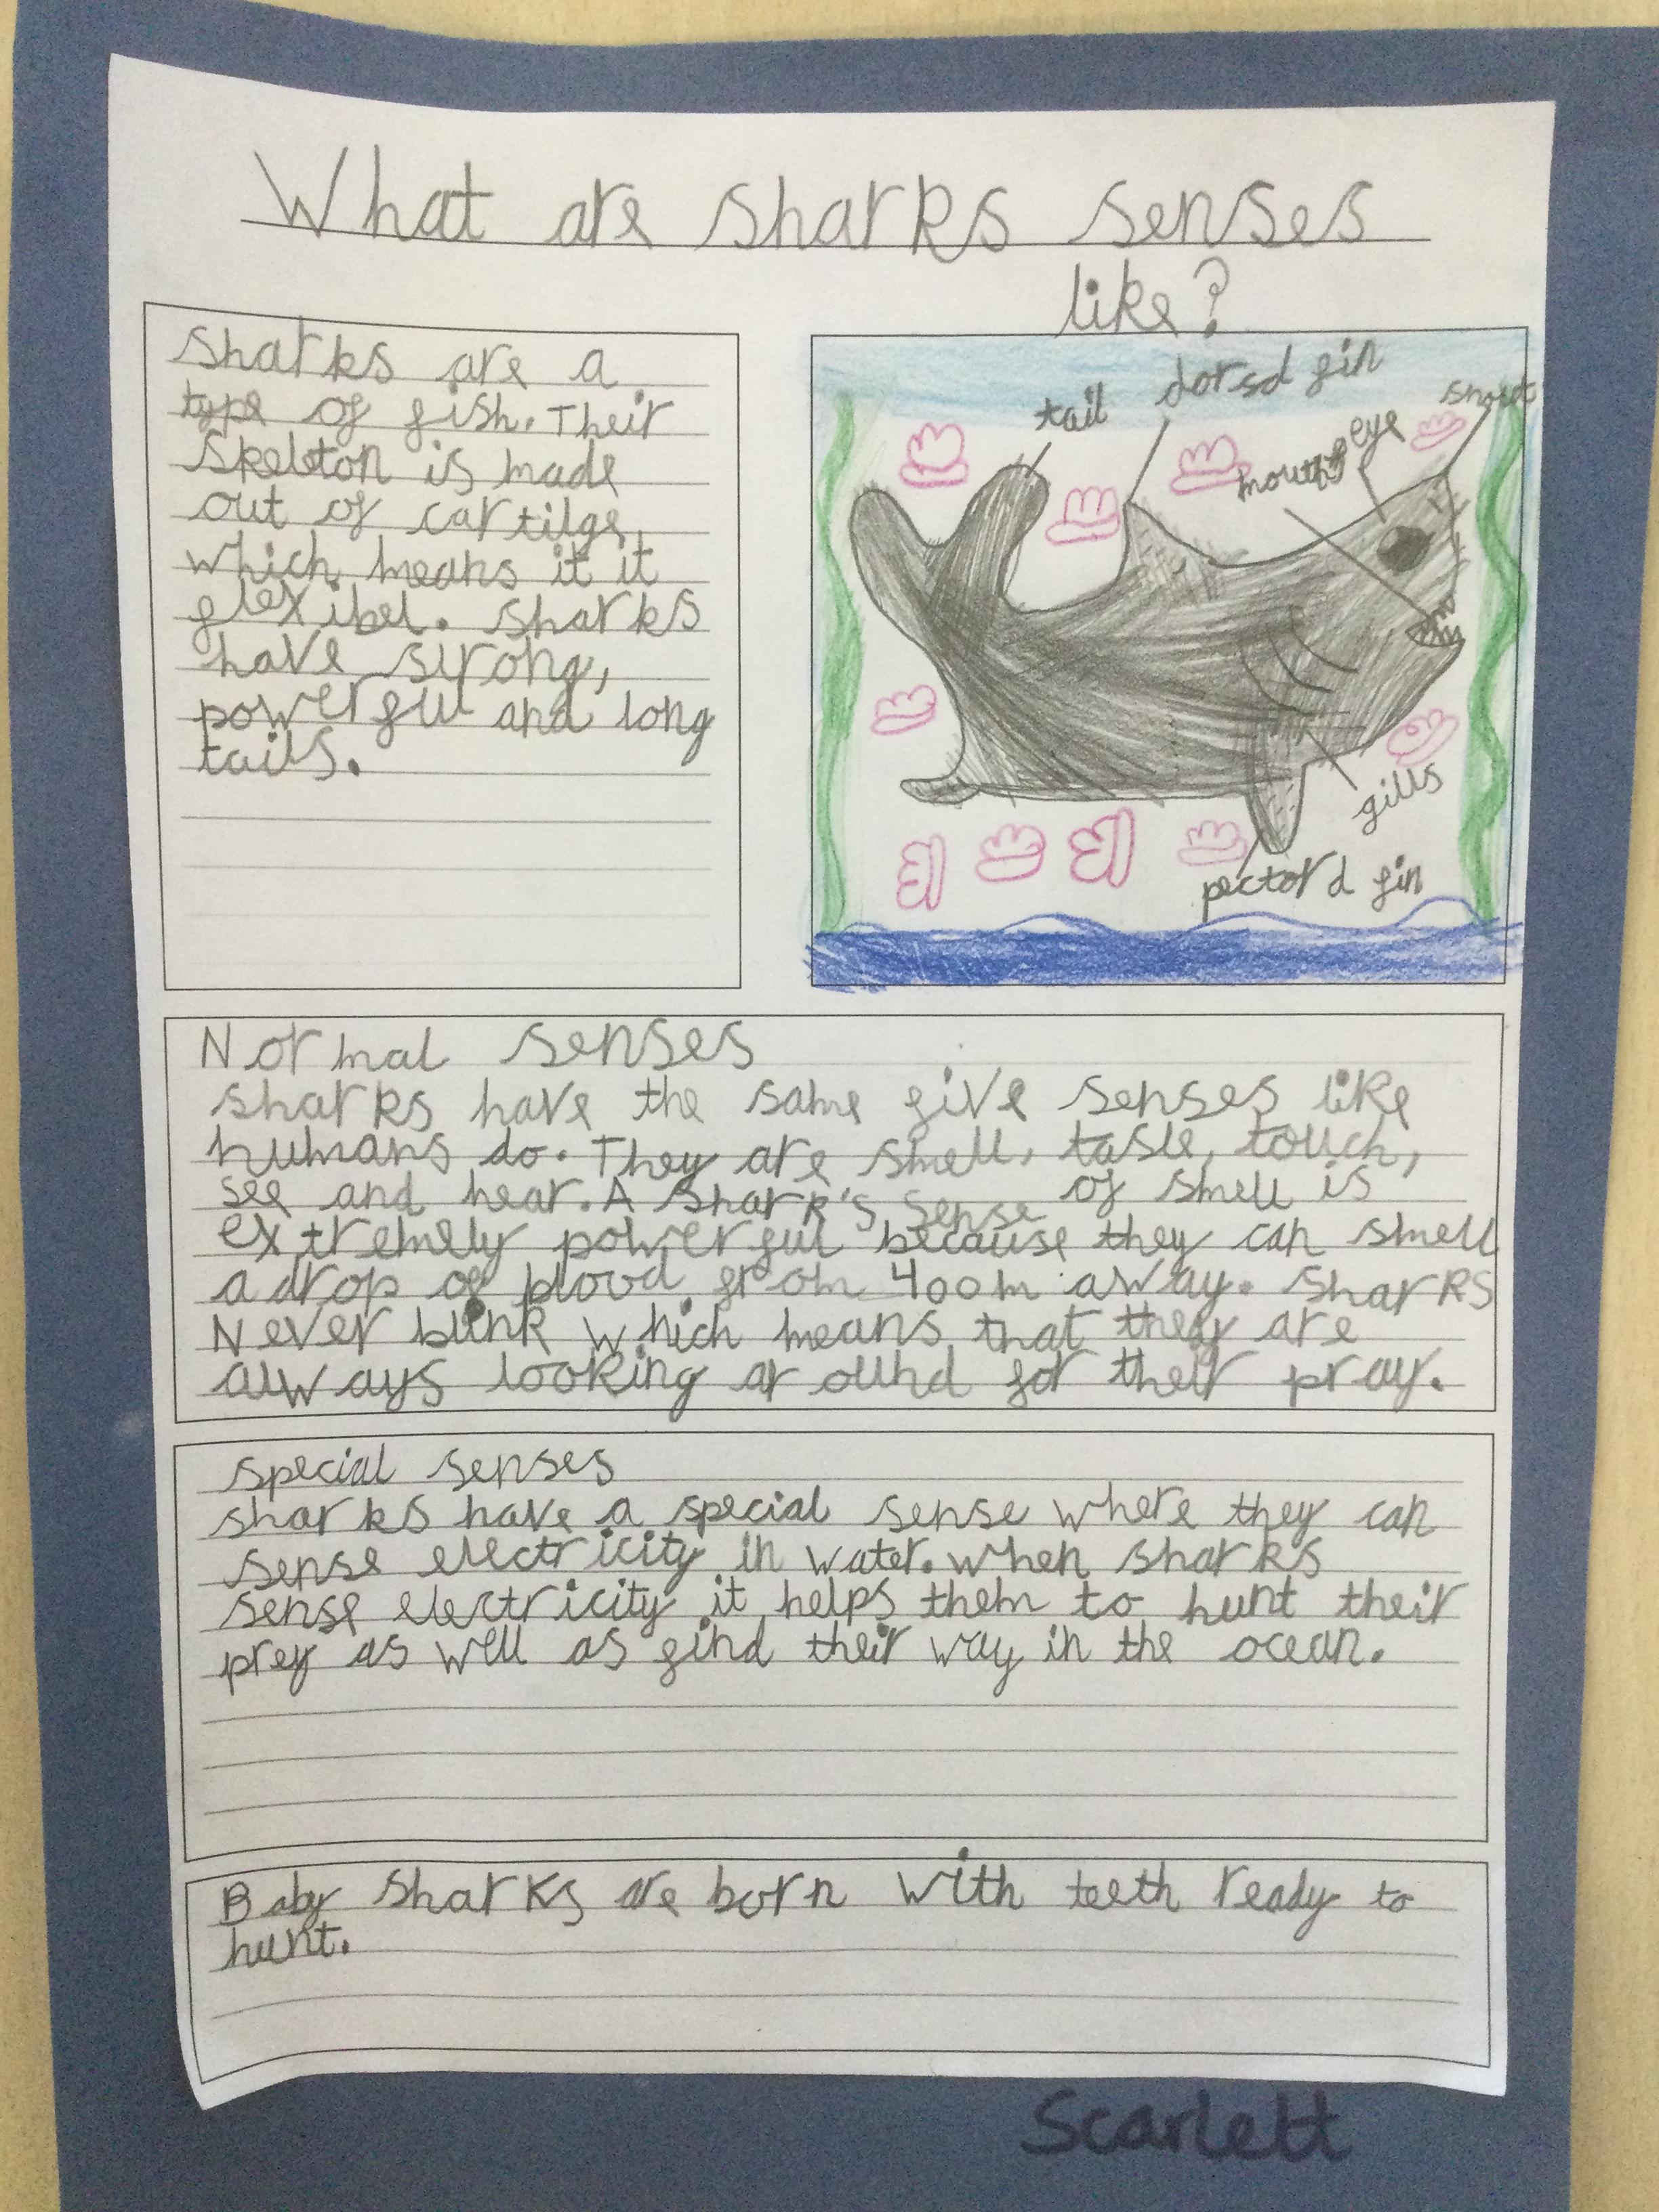 What are sharks senses
like?
sharks are a
type of fish. Their
skeleton is made
out of cartilge
which means it it
flexibel. Sharks
have strong,
powerful and long
tails.
tail
dorsal fin
snout
mouth
eye
gills
pectoral fin
Normal senses
sharks have the same five senses like
humans do. They are smell, taste, touch,
see and hear. A Shark's sense of smell is
extremely powerful because they can smell
a drop of blood from 400m away. Sharks
Never blink which means that they are
always looking around for their pray.
special senses
sharks have a special sense where they can
sense electricity in water. When sharks
sense electricity it helps them to hunt their
prey as well as find their way in the ocean.
Baby sharks are born with teeth ready to
hunt.
Scarlett